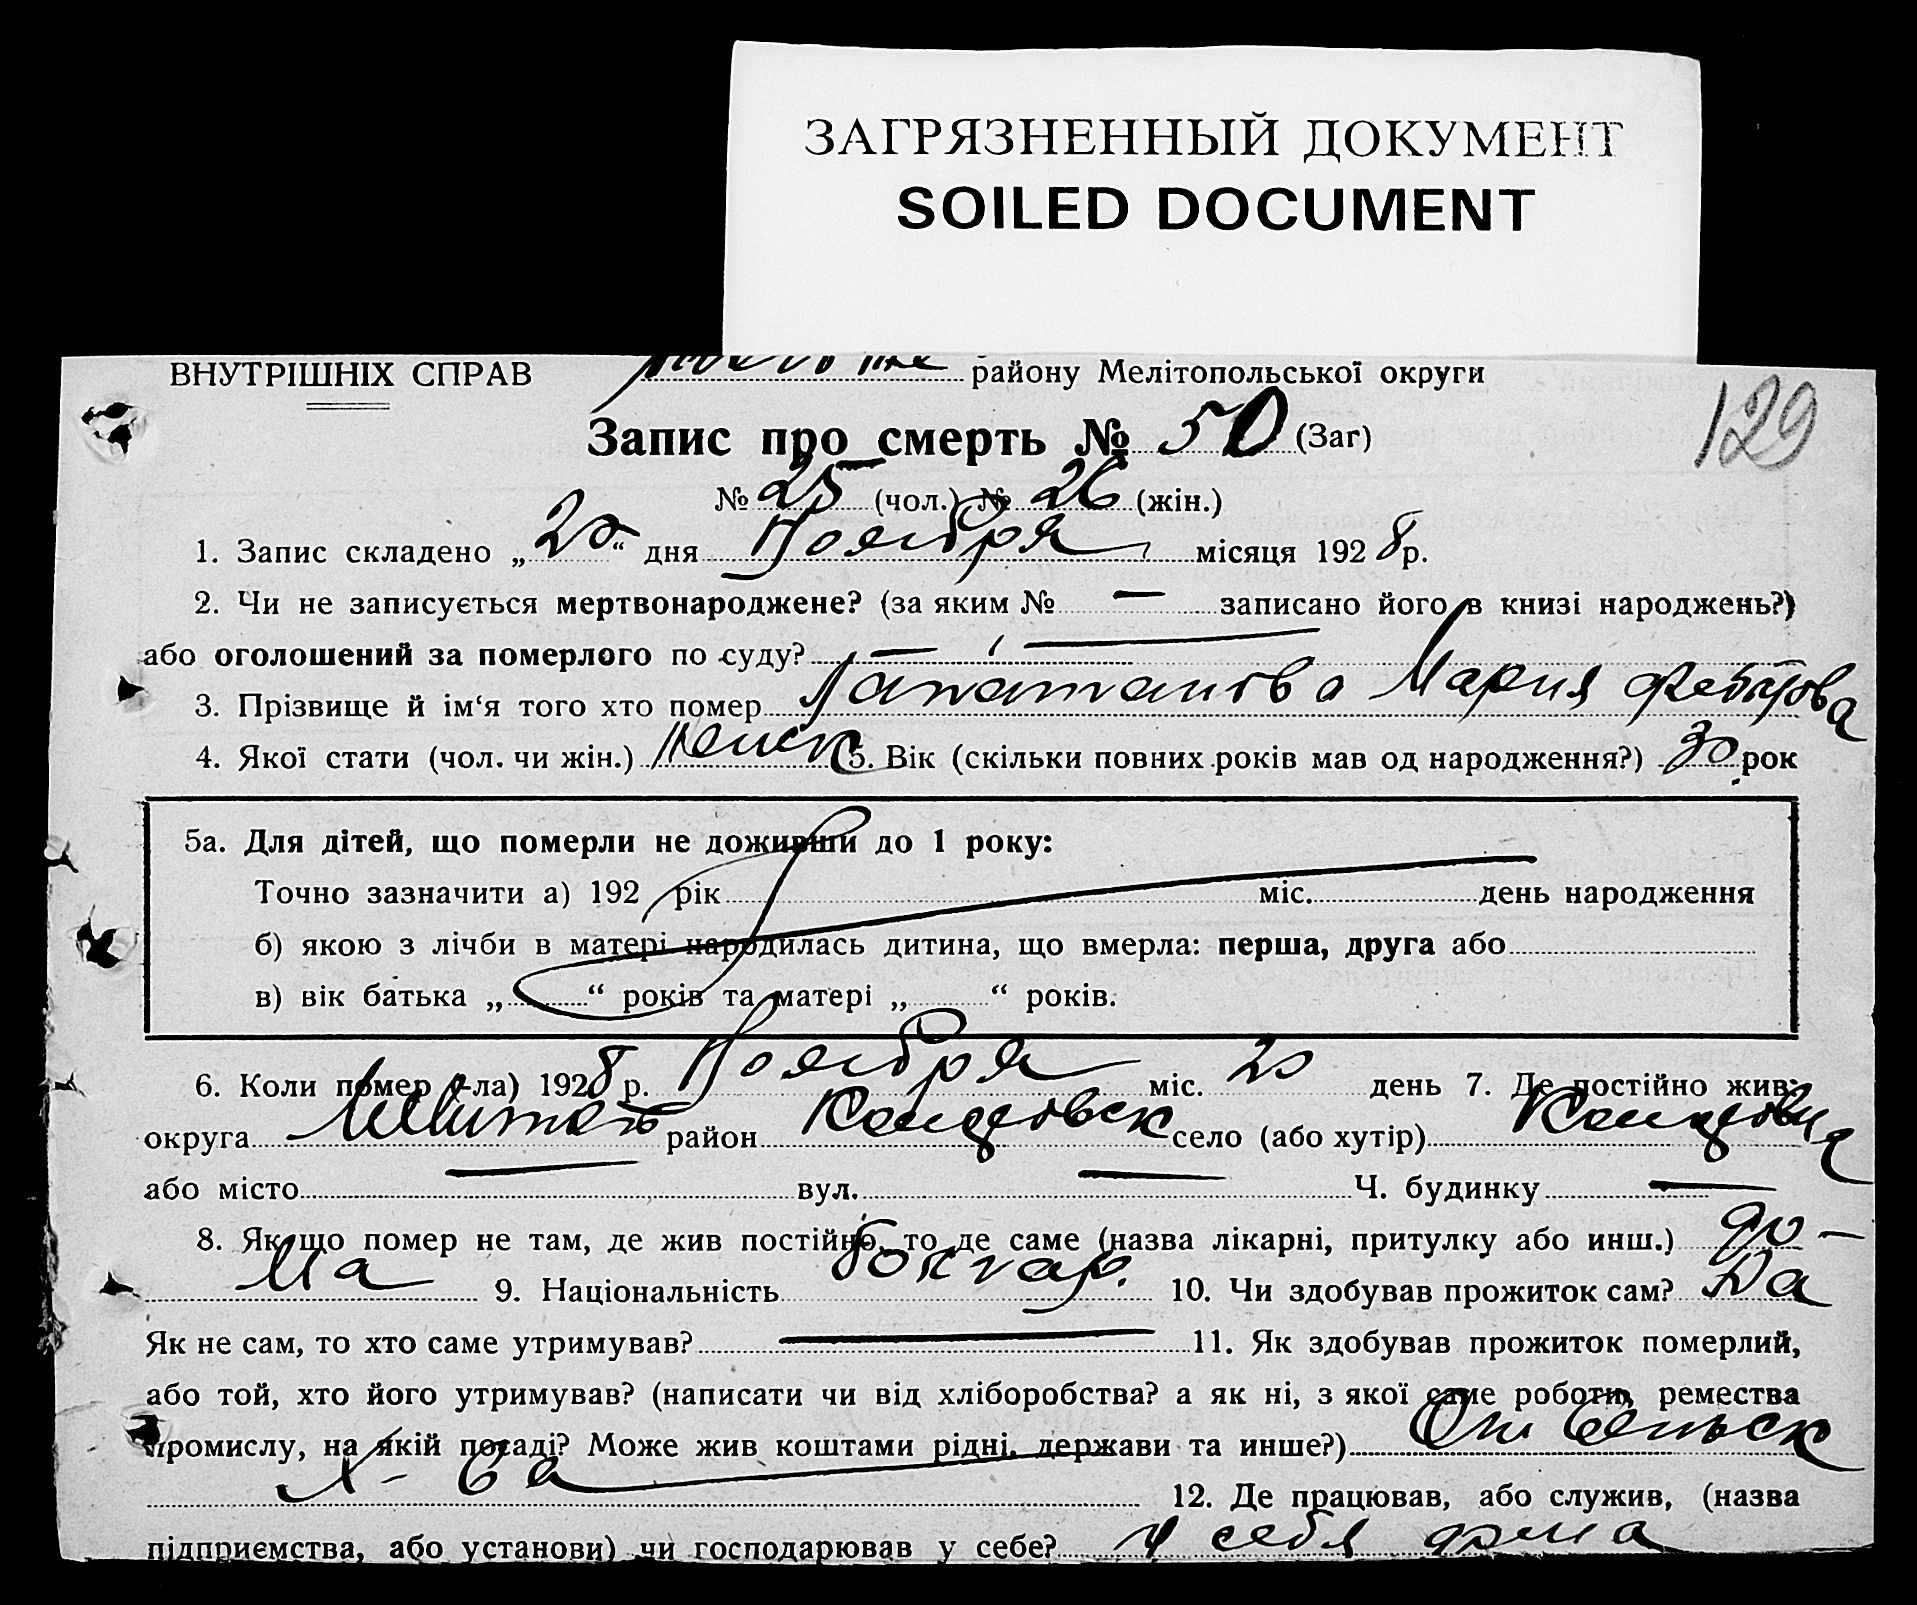 ЗАГРЯЗНЕННЫЙ ДОКУМЕНТ
SOILED DOCUMENT
ВНУТРІШНІХ СПРАВ району Мелітопольської округи
129
Запис про смерть № 50 (Заг)
№ 25 (чол.) № 26 (жін.)
1. Запис складено „ 20 “ дня Ноября місяця 1928 р.
2. Чи не записується мертвонароджене? (за яким № — записано його в книзі народжень?)
або оголошений за померлого по суду? —
3. Прізвище й ім‘я того хто помер Мария
4. Якої стати (чол. чи жін.) женск 5. Вік (скільки повних років мав од народження?) 30 рок
5а. Для дітей, що померли не доживши до 1 року:
Точно зазначити а) 192 рік міс. день народження
б) якою з лічби в матері народилась дитина, що вмерла: перша, друга або
в) вік батька „ “ років та матері „ “ років.
6. Коли помер (-ла) 1928 р. Ноября міс. 20 день 7. Де постійно жив:
округа район село (або хутір)
або місто — вул. — Ч. будинку —
8. Якщо помер не там, де жив постійно, то де саме (назва лікарні, притулку або инш.) до-
ма 9. Національність болгар. 10. Чи здобував прожиток сам? Да
Як не сам, то хто саме утримував? — 11. Як здобував прожиток померлий,
або той, хто його утримував? (написати чи від хліборобства? а як ні, з якої саме роботи, ремества
промислу, на якій посаді? Може жив коштами рідні, держави та инше?) От сельск
х-ва 12. Де працював, або служив, (назва
підприємства, або установи) чи господарював у себе? у себя дома